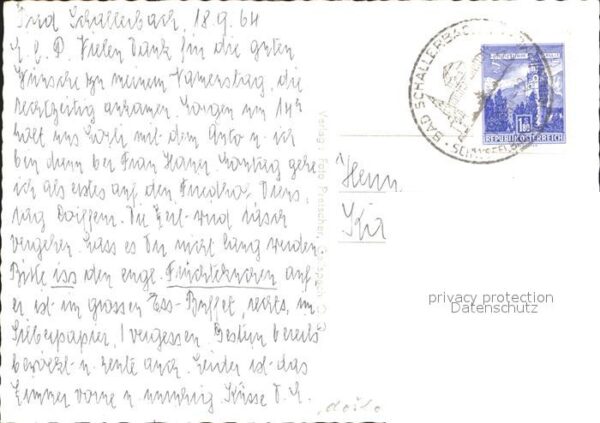 Bad Schallerbach, 18.9.64
Vielen Dank für die guten
Wünsche zu meinem Namenstag, die
rechtzeitig ankamen. Morgen um 14h
holt uns mit dem Auto u. ich
bin dann bei Frau Sonntag gehe
ich als erstes auf den Friedhof. Diens-
tag Die Zeit wird rasch
vergehen. Lass es Dir nicht lang werden
Bitte iss den engl. Früchtekuchen auf
er ist im grossen Ess-Buffet, rechts, im
Silberpapier, ! vergessen. Gestern bereits
bewölkt u. heute auch. Leider ist das
Zimmer vorne u. unruhig. Küsse D.
Verlag Foto
BAD SCHALLERBACH
1.80
REPUBLIK ÖSTERREICH
Herrn
privacy protection
Datenschutz